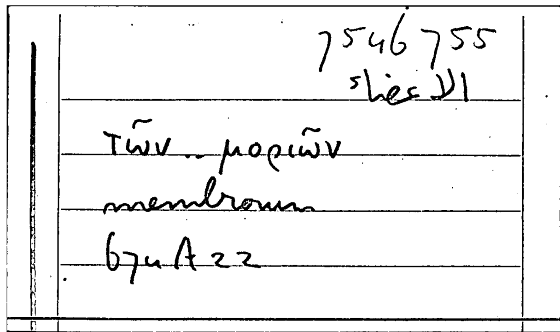 7546 755
الاعضاء
τῶν .. μοριῶν
membrorum
674 A 22